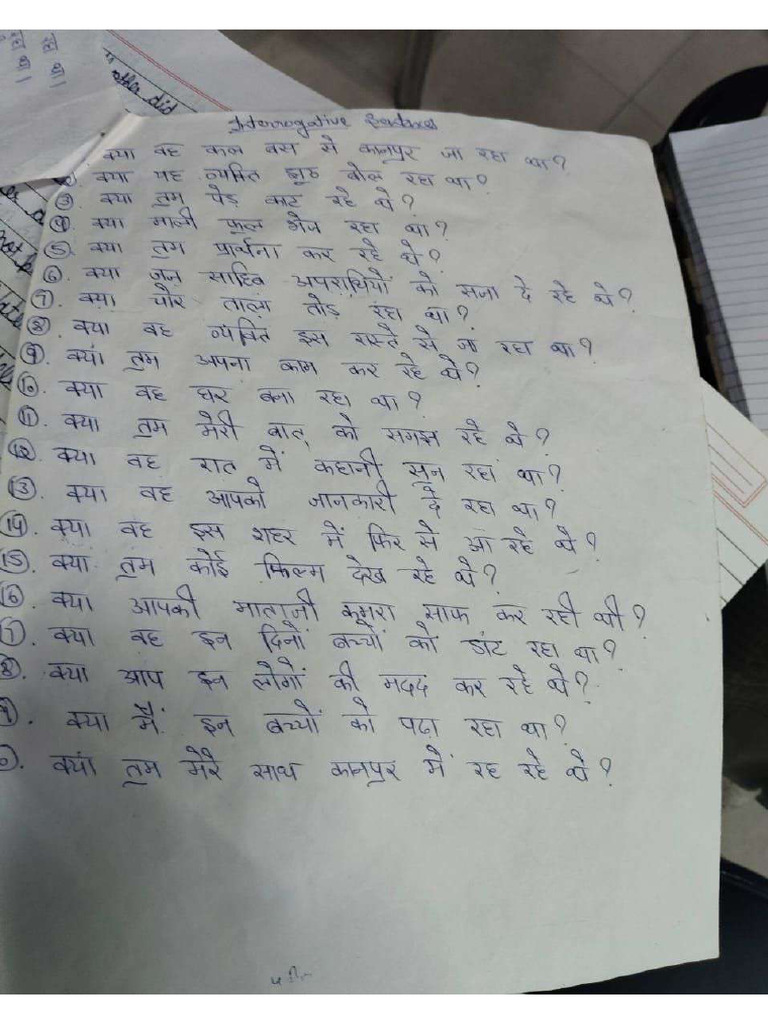 other did
Interrogative Sentences
क्या वह कल बस से कानपुर जा रहा था?
क्या यह व्यक्ति झूठ बोल रहा था?
③ क्या तुम पेड़ काट रहे थे?
④ क्या माली फूल भेज रहा था?
⑤ क्या तुम प्रार्थना कर रहे थे?
⑥ क्या जज साहिब अपराधियों को सजा दे रहे थे?
⑦. क्या चोर ताला तोड़ रहा था?
⑧. क्या वह व्यक्ति इस रास्ते से जा रहा था?
⑨. क्या तुम अपना काम कर रहे थे?
⑩. क्या वह घर बना रहा था?
⑪. क्या तुम मेरी बात को समझ रहे थे?
⑫. क्या वह रात में कहानी सुन रहा था?
⑬. क्या वह आपको जानकारी दे रहा था?
⑭. क्या वह इस शहर में फिर से आ रहे थे?
⑮. क्या तुम कोई फिल्म देख रहे थे?
⑯. क्या आपकी माताजी कमरा साफ कर रही थी?
क्या वह इन दिनों बच्चों को डांट रहा था?
क्या आप इन लोगों की मदद कर रहे थे?
क्या मैं इन बच्चों को पढा रहा था?
क्या तुम मेरे साथ कानपुर में रह रहे थे?